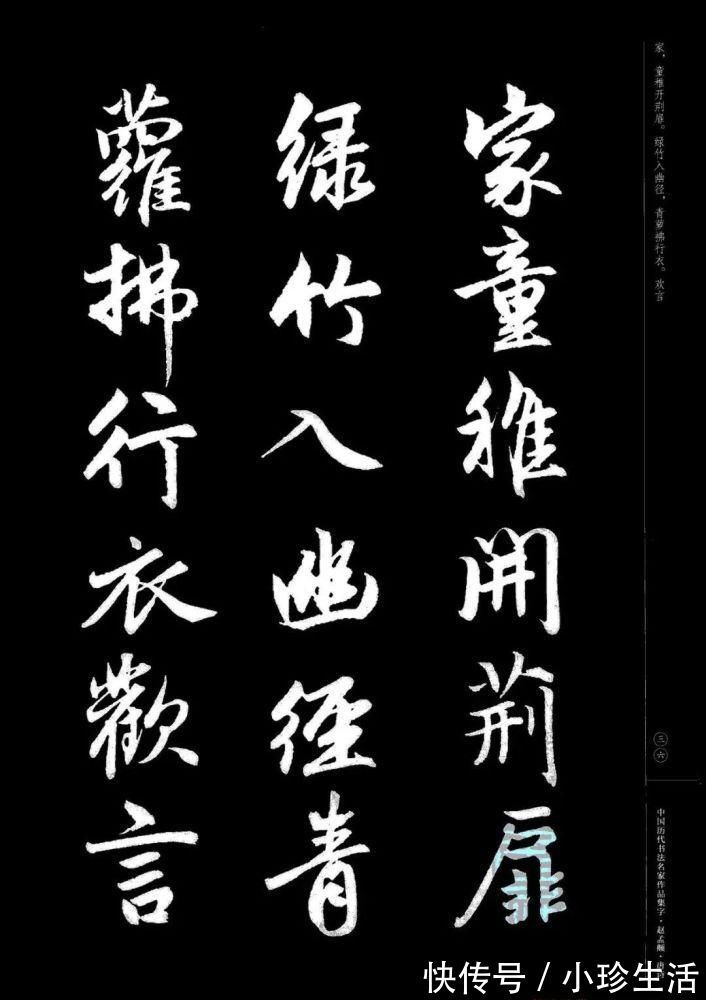 家童稚開荆扉
绿竹入幽徑青
蘿拂行衣歡言
家，童稚开荆扉。绿竹入幽径，青萝拂行衣。欢言
三六
中国历代书法名家作品集字·赵孟頫·唐诗
快传号／小珍生活